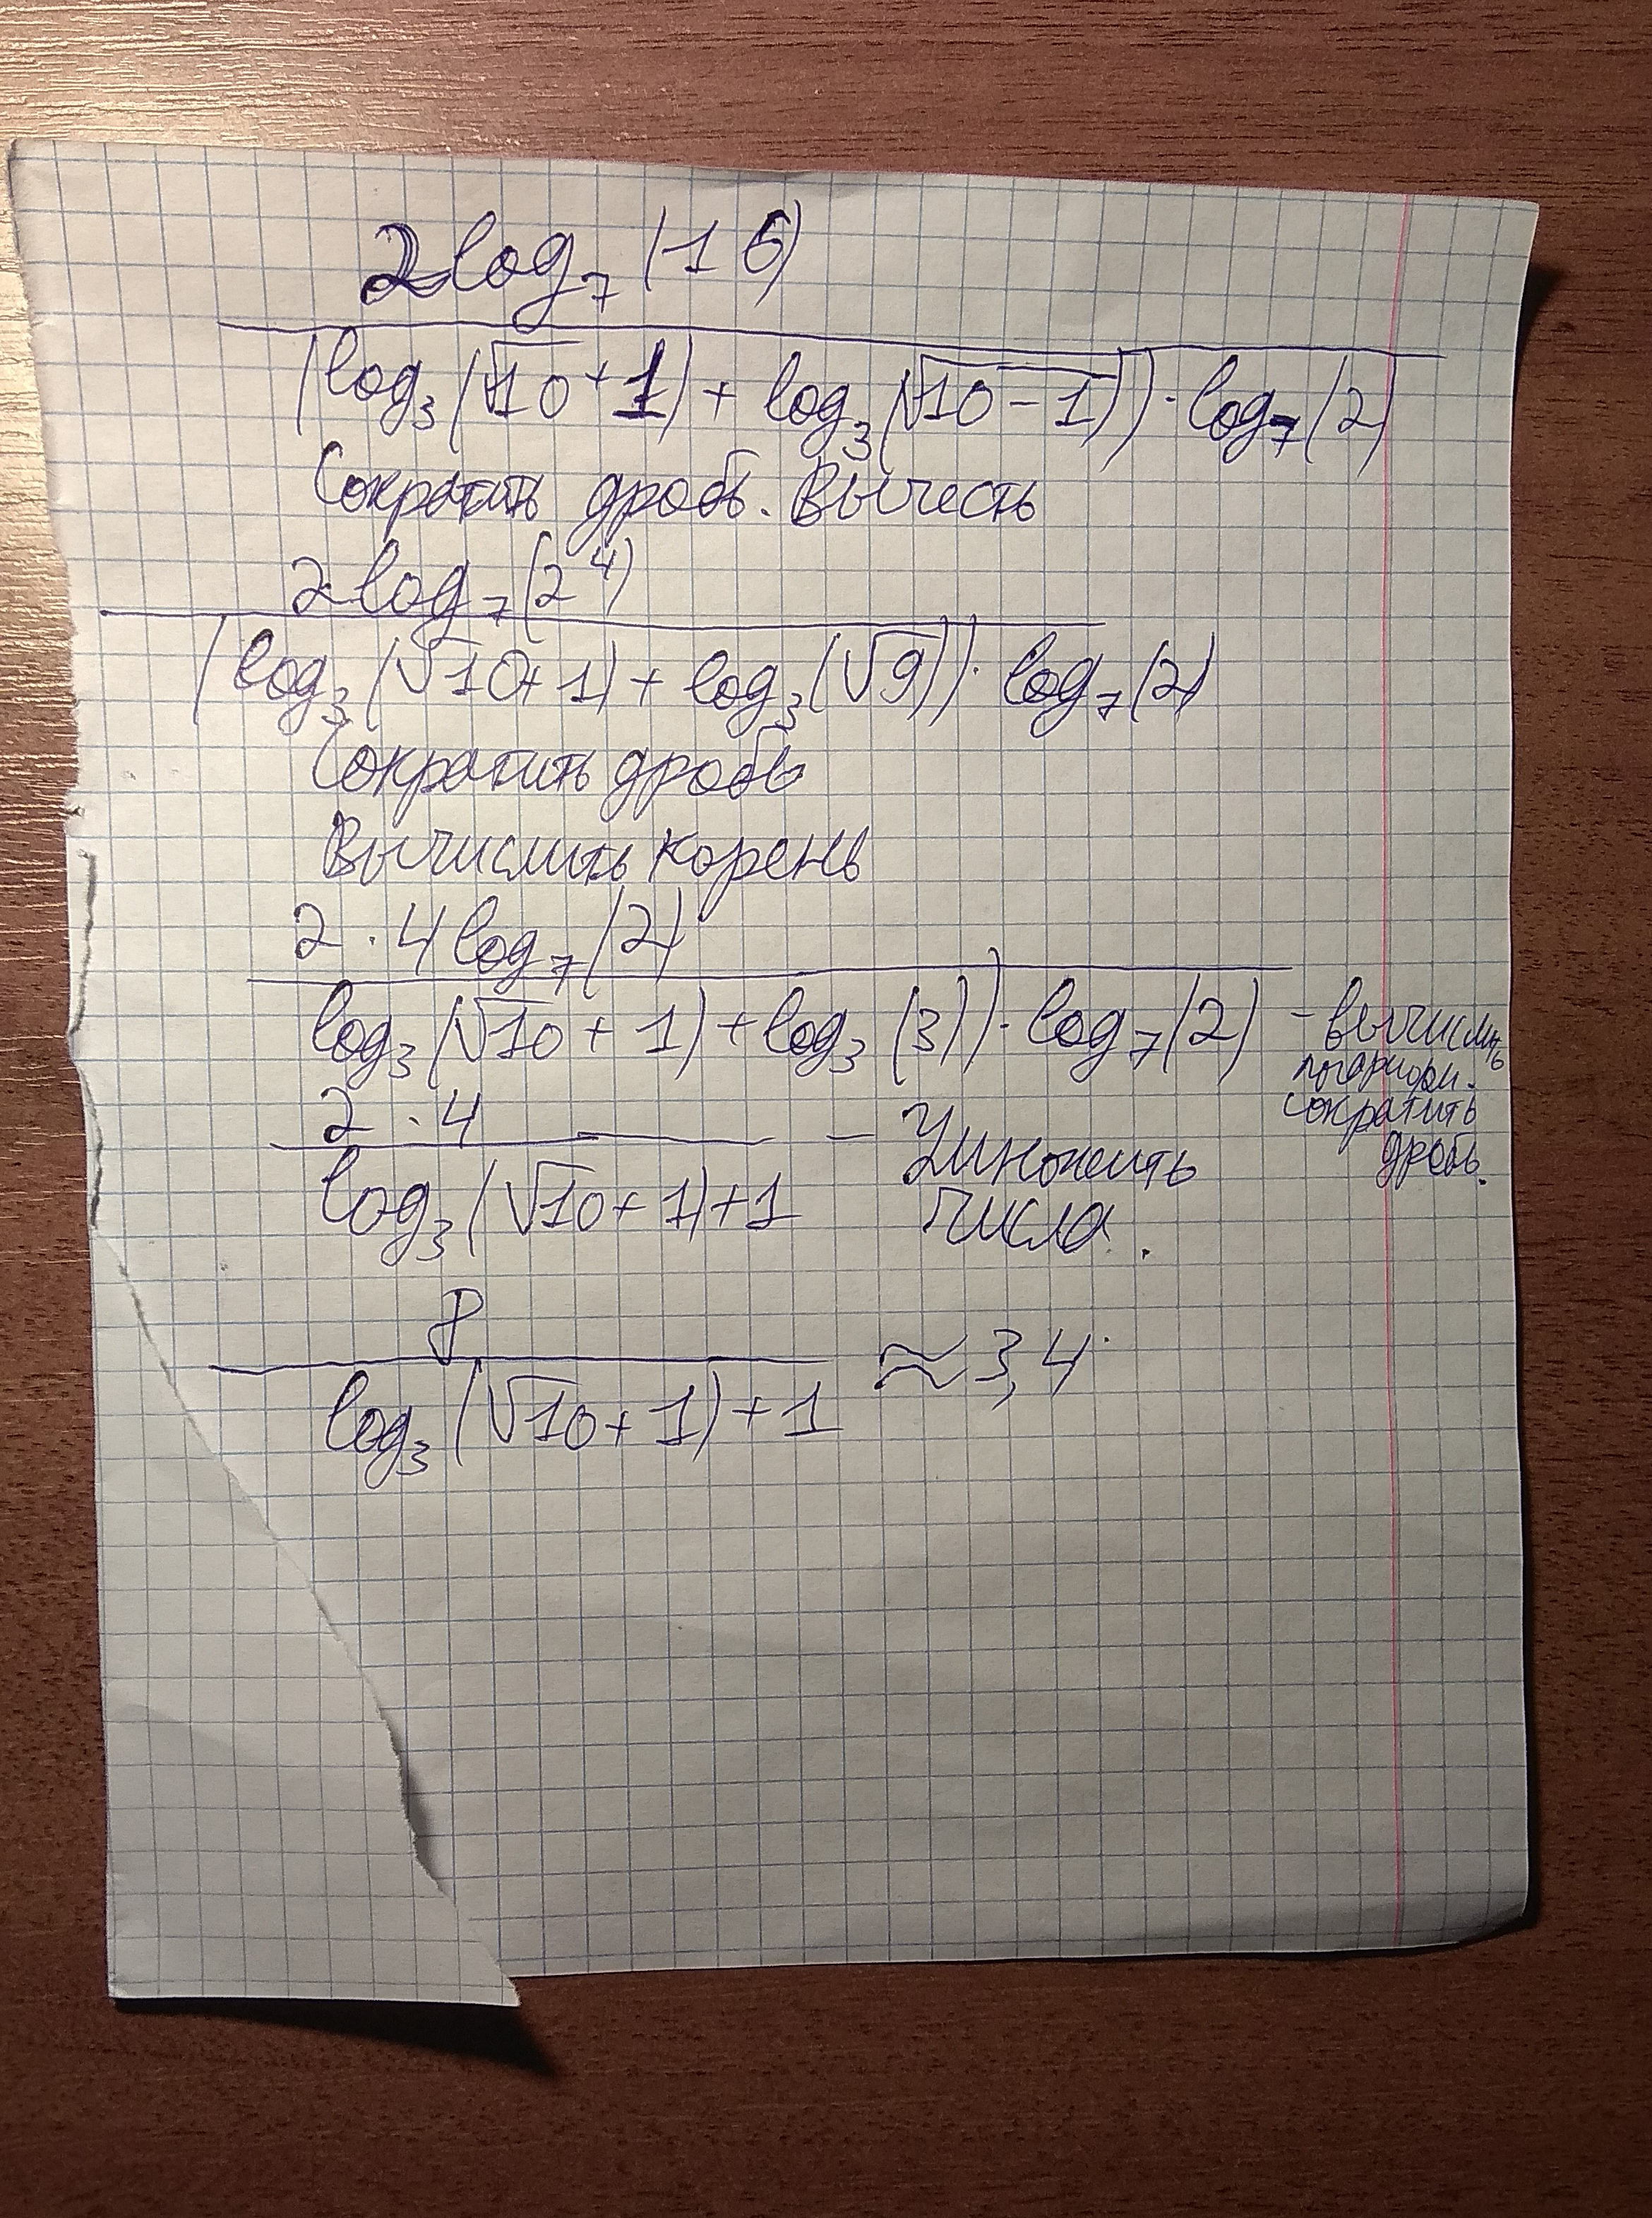 2log₇(16)
(log₃(√10+1)+log₃(√10-1))·log₇(2)
Сократить дробь. Вычесть
2log₇(2⁴)
(log₃(√10+1)+log₃(√9))·log₇(2)
Сократить дробь
Вычислить корень
2·4log₇(2)
log₃(√10+1)+log₃(3))·log₇(2) - вычислить
логарифм.
сократить
дробь.
2·4
log₃(√10+1)+1
- Умножить
числа.
8
log₃(√10+1)+1
≈3,4